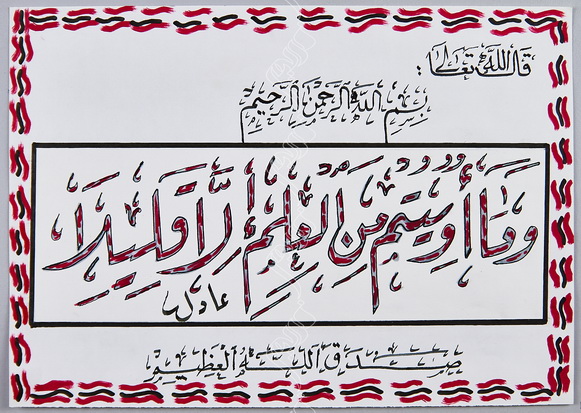 قال الله تعالى:
بسم الله الرحمن الرحيم
وما أوتيتم من العلم إلا قليلا
عادل
صدق الله العظيم